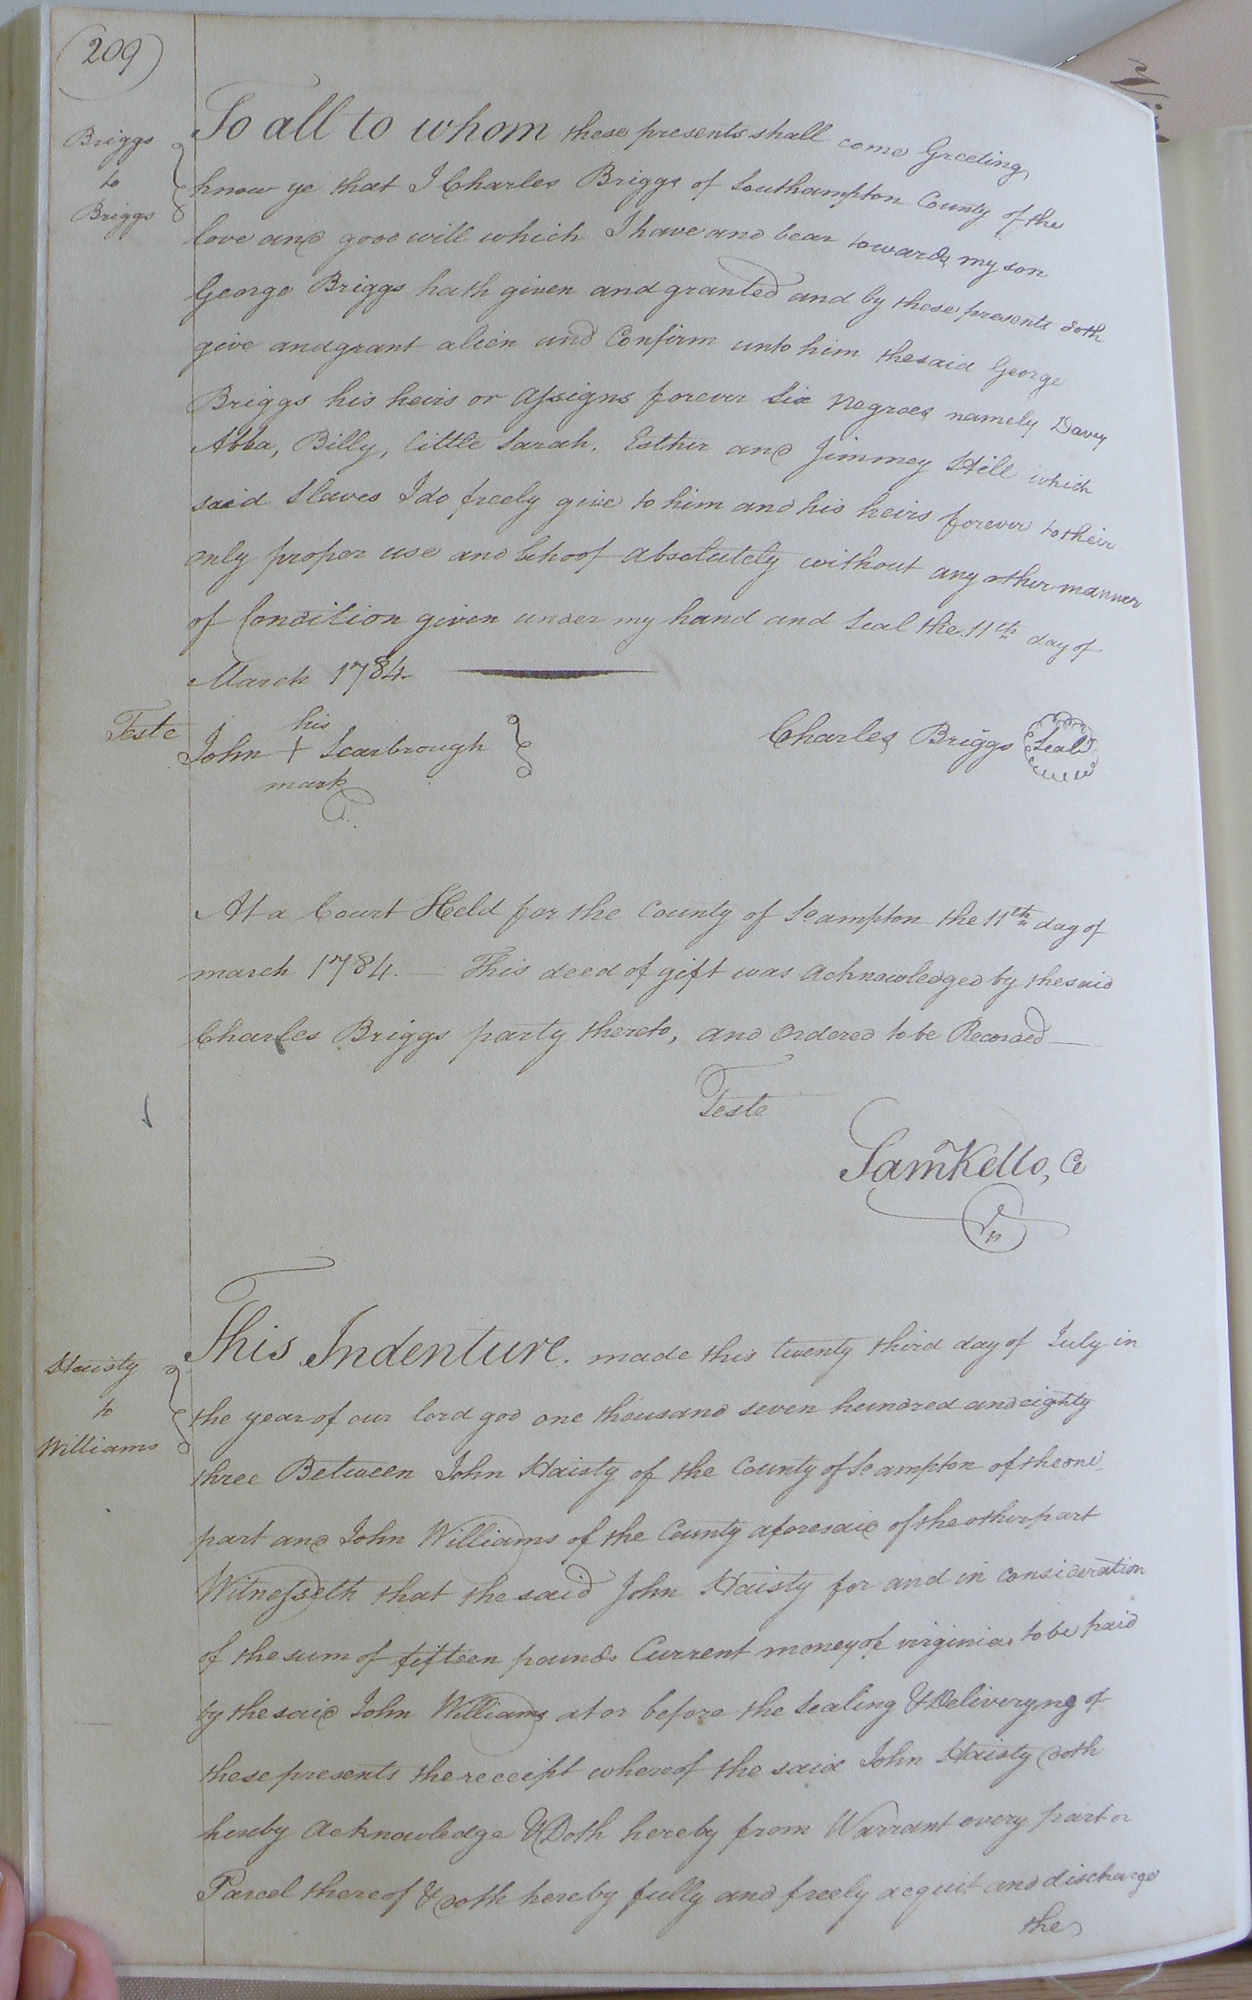 209
Briggs
to
Briggs
To all to whom these presents shall come Greeting
know ye that I Charles Briggs of Southampton County of the
love and good will which I have and bear towards my son
George Briggs hath given and granted and by these presents doth
give and grant alien and Confirm unto him the said George
Briggs his heirs or assigns forever Six Negroes namely Davy
Abba, Billy, little Sarah, Esther and Jimmey Hill which
said Slaves I do freely give to him and his heirs forever to their
only proper use and behoof absolutely without any other manner
of Condition given under my hand and Seal the 11th day of
March 1784
Teste
his
John + Scarbrough
mark
Charles Briggs Seal
At a Court Held for the County of So ampton the 11th day of
march 1784. This deed of gift was acknowledged by the said
Charles Briggs party thereto, and ordered to be Recorded
Teste
Saml Kello, C
Haisty
to
Williams
This Indenture made this twenty third day of July in
the year of our lord god one thousand seven hundred and eighty
three Between John Haisty of the County of So ampton of the one
part and John Williams of the County aforesaid of the other part
Witnesseth that the said John Haisty for and in consideration
of the sum of fifteen pounds Current money of virginia to be paid
by the said John Williams at or before the Sealing & Deliveryng of
these presents the receipt whereof the said John Haisty doth
hereby acknowledge & Doth hereby from Warrant every part or
Parcel thereof & doth hereby fully and freely acquit and discharge
the